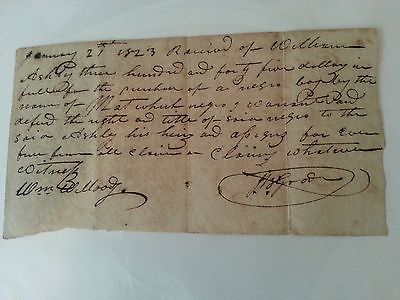 January 27th 1823 Received of William
Ashley three hundred and forty five dollars in
full for the purchase of a negro boy by the
name of which negro I warrant and
defend the right and title of said negro to the
said Ashley his heirs and assigns for ever
from all claim or claims whatever
Witness
Wm